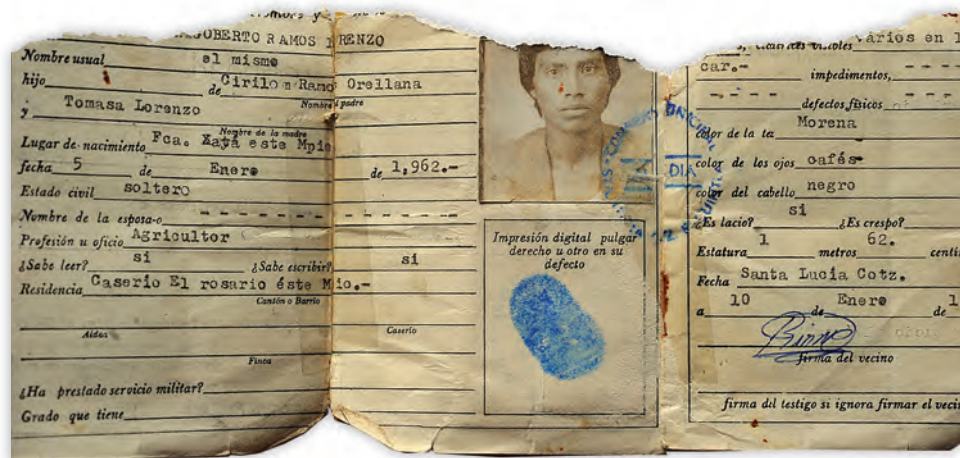 OBERTO RAMOS
Nombre usual el mismo
hijo de Cirilo Ramo Orellana
Nombre padre
y Tomasa Lorenzo
Nombre de la madre
Lugar de nacimiento Fca. Xatá este Mpio
fecha 5 de Enero de 1,962.-
Estado civil soltero
Nombre de la esposa-o - - - - - - - - - - - - - - -
Profesión u oficio Agricultor
¿Sabe leer? si ¿Sabe escribir? si
Residencia Caserio El rosario éste M io.-
Cantón o Barrio
Aldea Caserío
Finca
¿Ha prestado servicio militar?
Grado que tiene
Impresión digital pulgar
derecho u otro en su
defecto
DIA
visibles varios en l
car.- impedimentos,
- - - - defectos físicos
color de la te Morena
color de los ojos cafés
color del cabello negro
¿Es lacio? si ¿Es crespo?
Estatura 1 metros 62. centí
Fecha Santa Lucía Cotz.
a 10 de Enero de 1
firma del vecino
firma del testigo si ignora firmar el veci